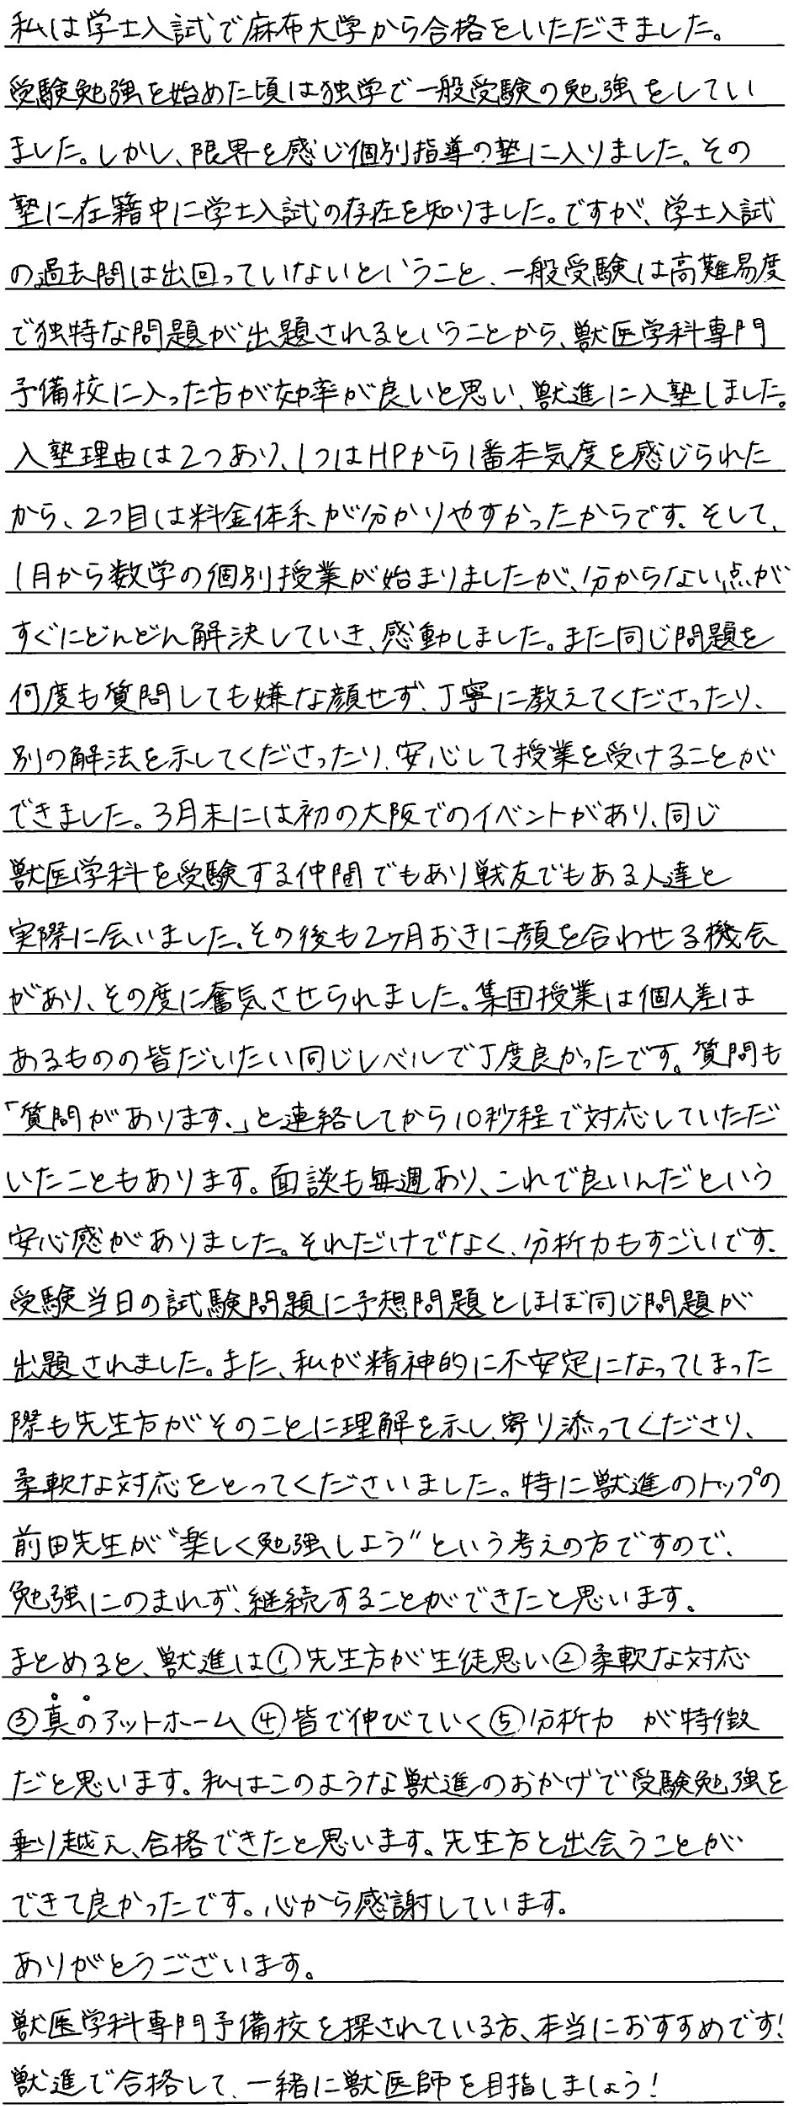 私は学士入試で麻布大学から合格をいただきました。
受験勉強を始めた頃は独学で一般受験の勉強をしてい
ました。しかし、限界を感じ個別指導の塾に入りました。その
塾に在籍中に学士入試の存在を知りました。ですが、学士入試
の過去問は出回っていないということ、一般受験は高難易度
で独特な問題が出題されるということから、獣医学科専門
予備校に入った方が効率が良いと思い、獣進に入塾しました。
入塾理由は2つあり、1つはHPから1番本気度を感じられた
から、2つ目は料金体系が分かりやすかったからです。そして、
1月から数学の個別授業が始まりましたが、分からない点が
すぐにどんどん解決していき、感動しました。また同じ問題を
何度も質問しても嫌な顔せず、丁寧に教えてくださったり、
別の解法を示してくださったり、安心して授業を受けることが
できました。3月末には初の大阪でのイベントがあり、同じ
獣医学科を受験する仲間でもあり戦友でもある人達と
実際に会いました。その後も2ヶ月おきに顔を合わせる機会
があり、その度に奮気させられました。集団授業は個人差は
あるものの皆だいたい同じレベルで丁度良かったです。質問も
「質問があります。」と連絡してから10秒程で対応していただ
いたこともあります。面談も毎週あり、これで良いんだという
安心感がありました。それだけでなく、分析力もすごいです。
受験当日の試験問題に予想問題とほぼ同じ問題が
出題されました。また、私が精神的に不安定になってしまった
際も先生方がそのことに理解を示し、寄り添ってくださり、
柔軟な対応をとってくださいました。特に獣進のトップの
前田先生が"楽しく勉強しよう"という考えの方ですので、
勉強にのまれず、継続することができたと思います。
まとめると、獣進は①先生方が生徒思い②柔軟な対応
③真のアットホーム④皆で伸びていく⑤分析力 が特徴
だと思います。私はこのような獣進のおかげで受験勉強を
乗り越え、合格できたと思います。先生方と出会うことが
できて良かったです。心から感謝しています。
ありがとうございます。
獣医学科専門予備校を探されている方、本当におすすめです!
獣進で合格して、一緒に獣医師を目指しましょう!